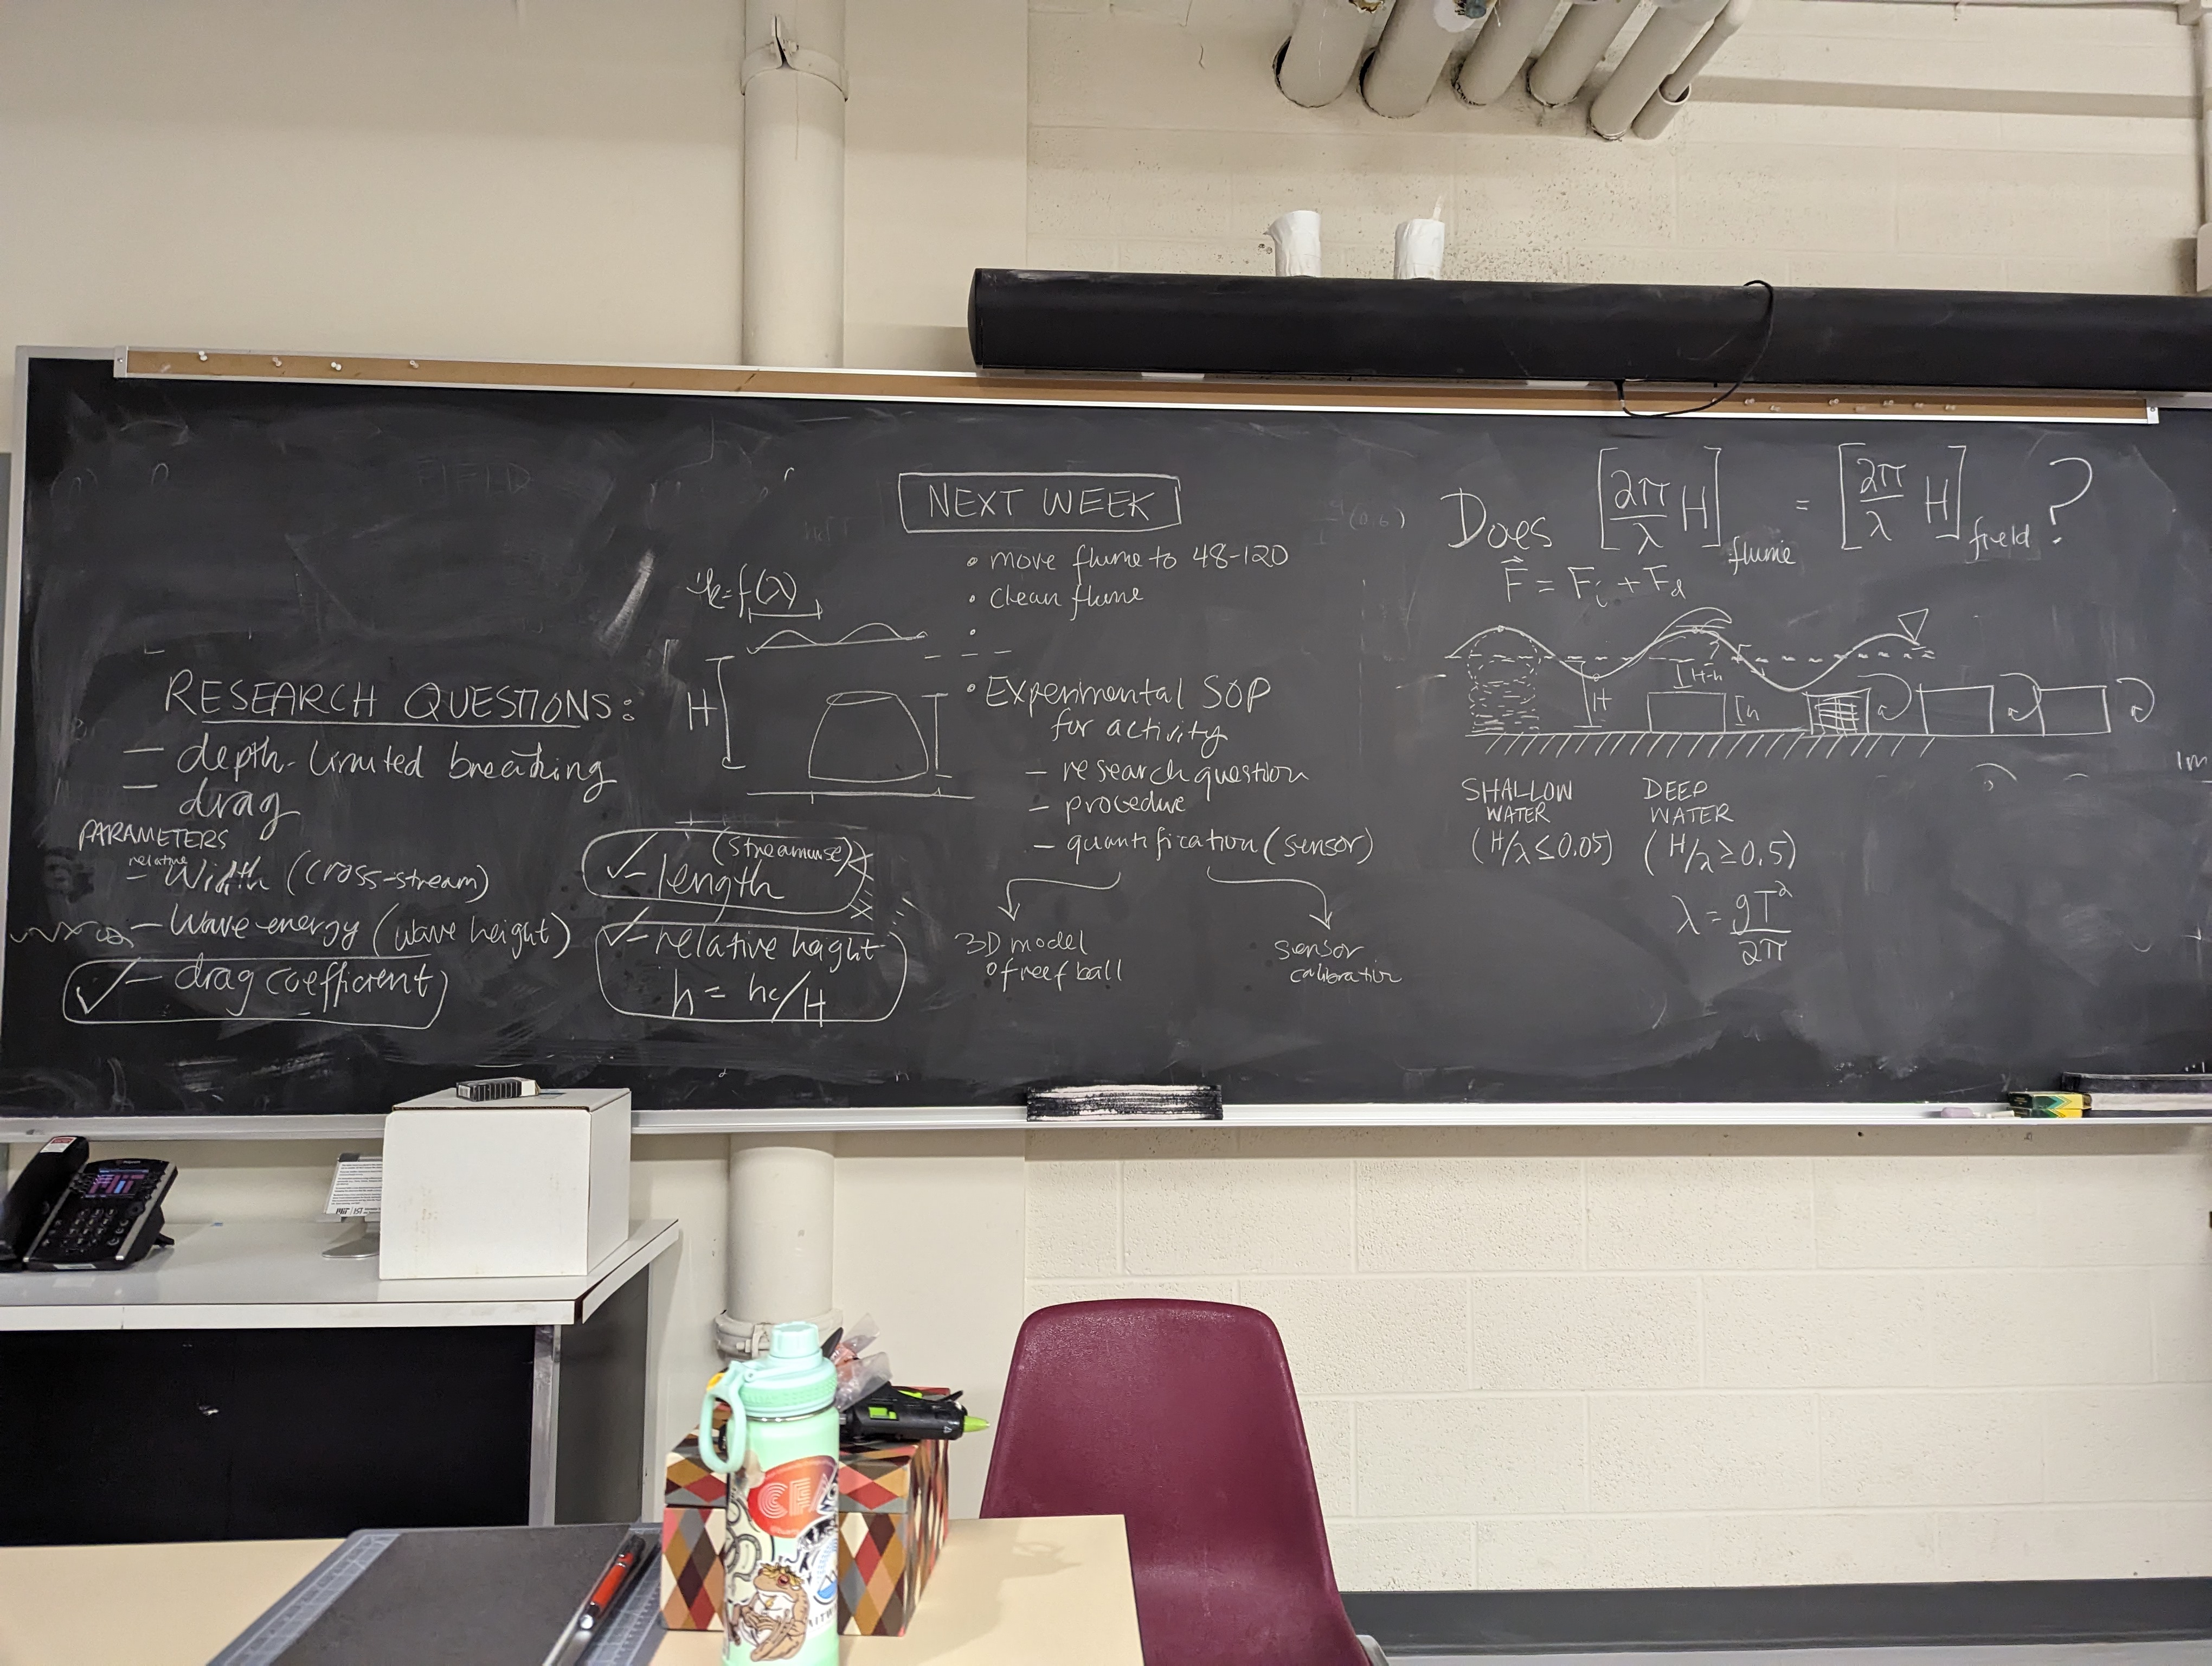 RESEARCH QUESTIONS:
— depth-limited breaking
— drag
PARAMETERS
relative
— Width (cross-stream)
— Wave energy (wave height)
✓— drag coefficient
(streamwise)
✓— length
✓— relative height
h = hc/H
k=f(λ)
H
NEXT WEEK
• move flume to 48-120
• clean flume
•
• Experimental SOP
for activity
— research question
— procedure
— quantification (sensor)
3D model
of reef ball
sensor
calibration
Does [2π/λ H]flume = [2π/λ H]field ?
F = Fi + Fd
H
H-h
h
SHALLOW
WATER
(H/λ ≤ 0.05)
DEEP
WATER
(H/λ ≥ 0.5)
λ = gT²/2π
FIELD
(0.6)
1m
MIT